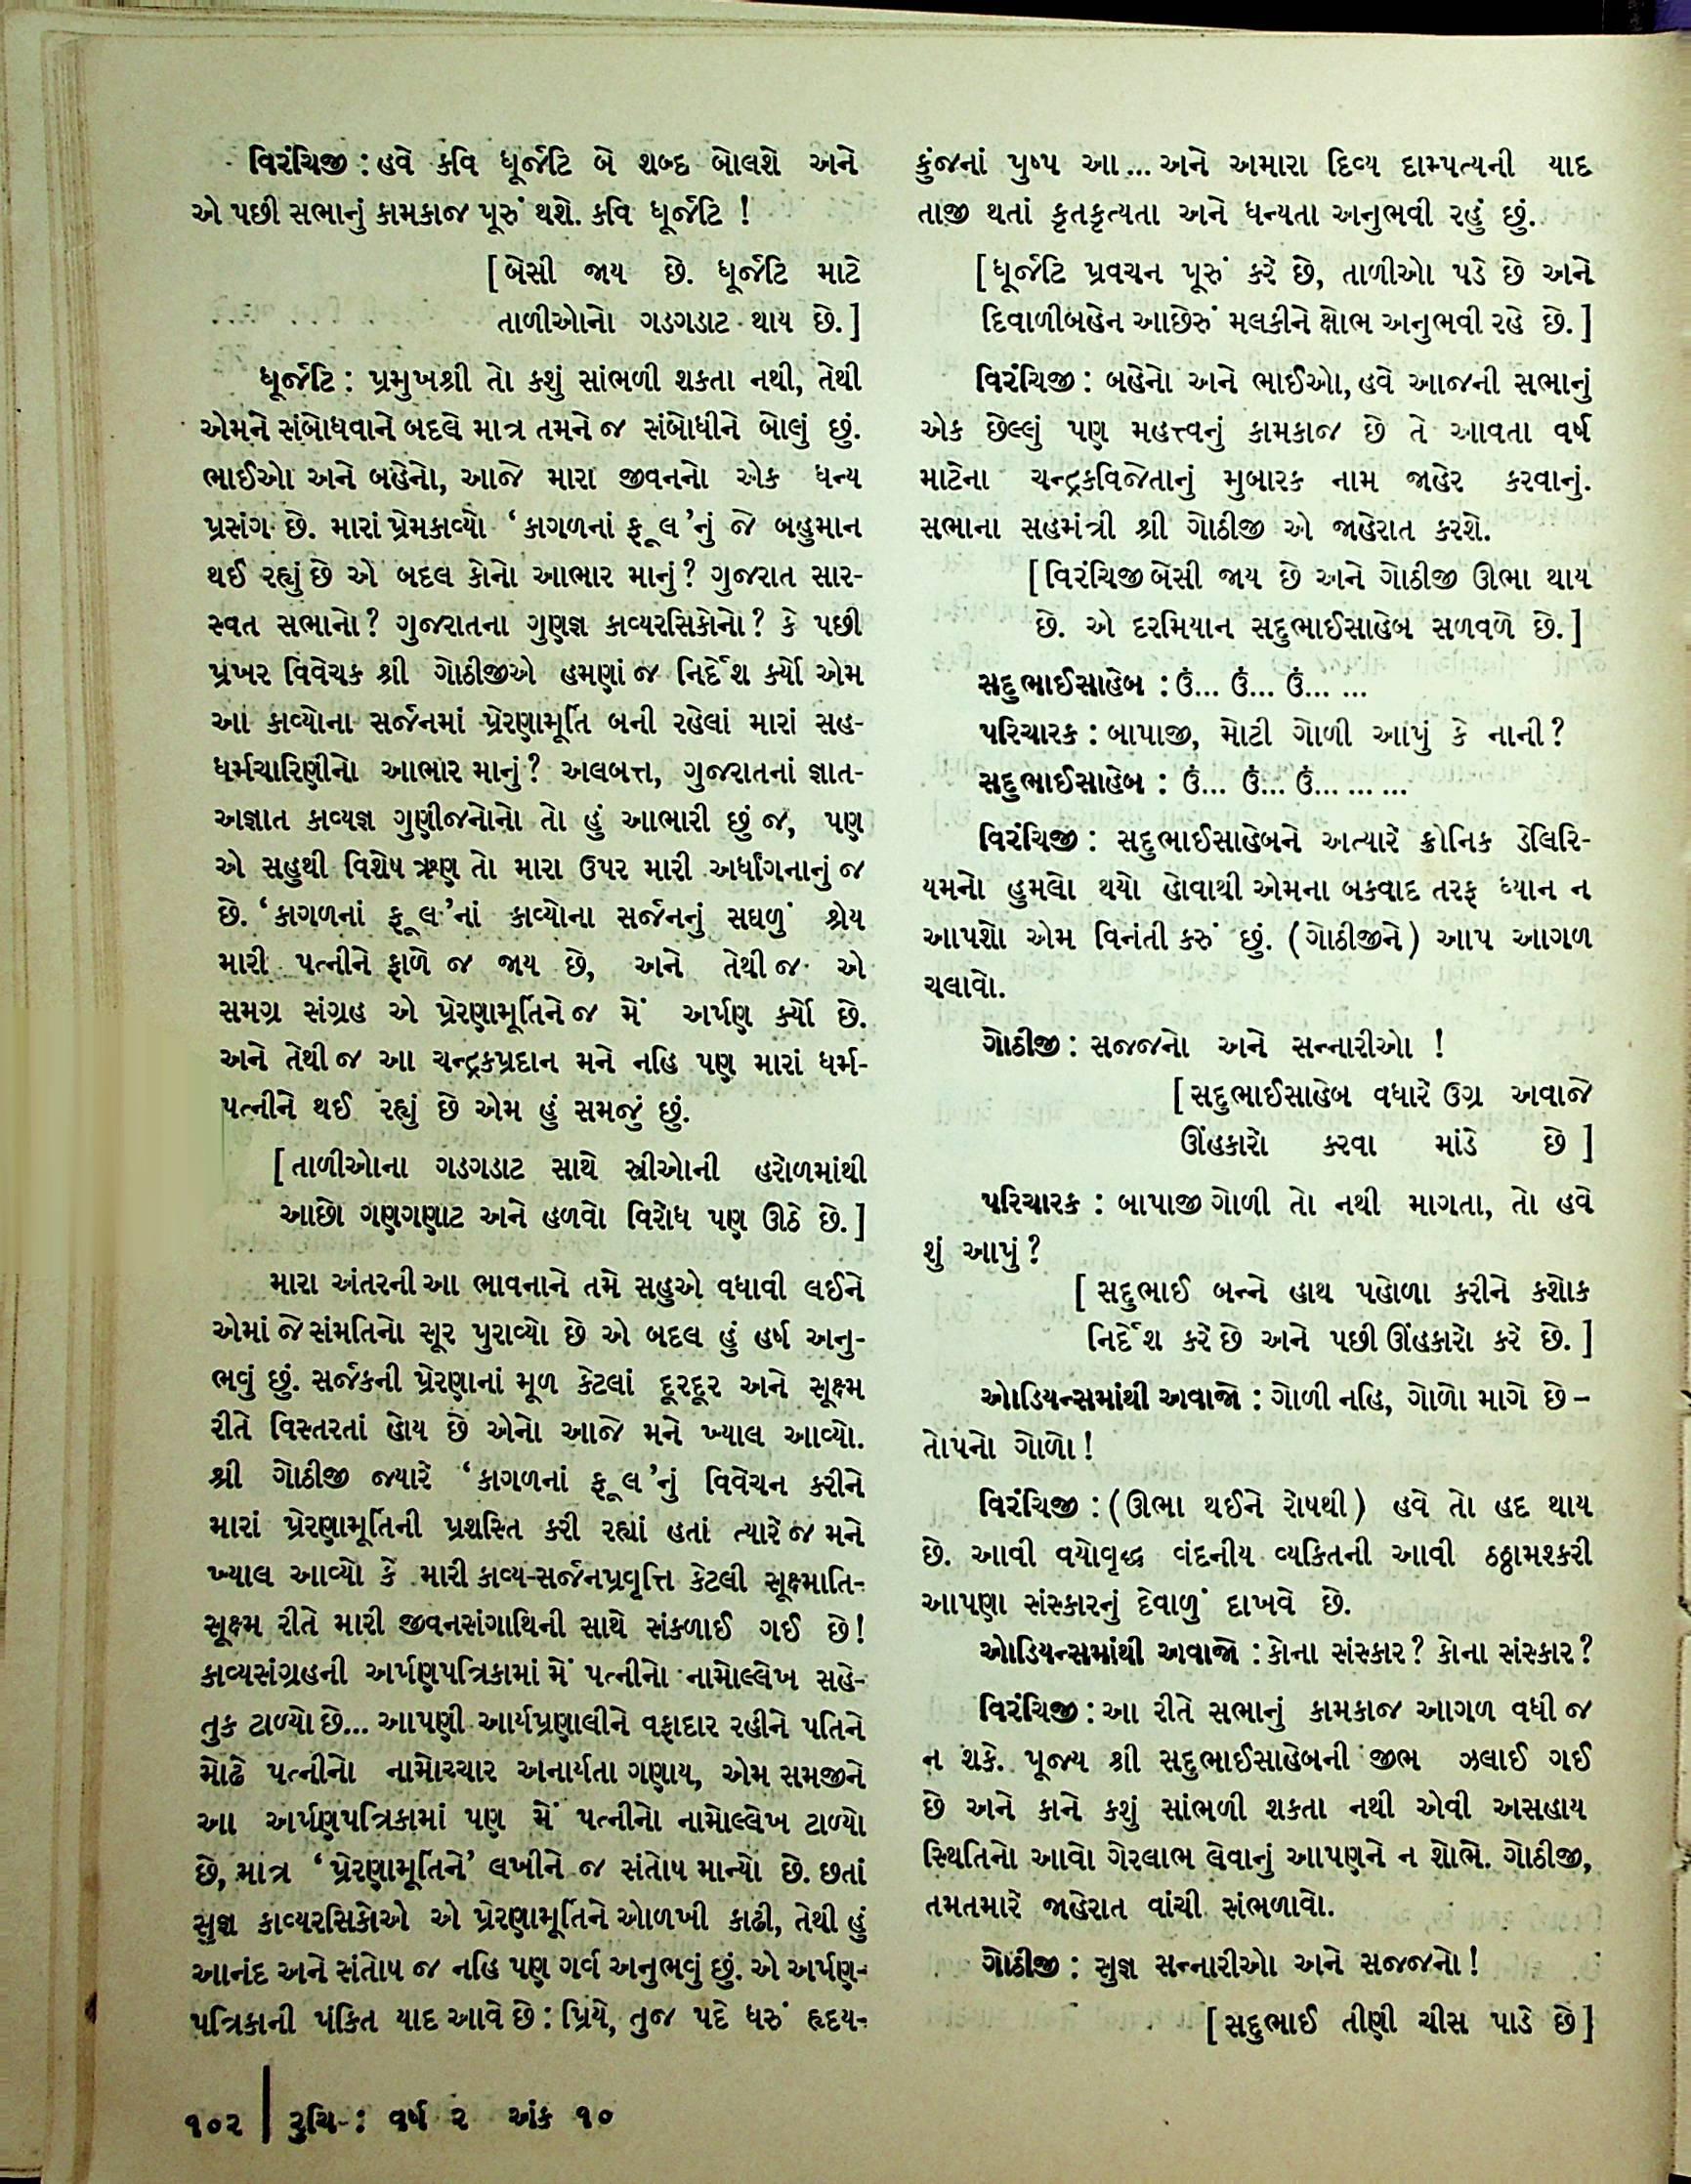 વિરંચિજી : હવે કવિ ધૂર્જટિ બે શબ્દ બોલશે અને
એ પછી સભાનું કામકાજ પૂરું થશે. કવિ ધૂર્જટિ !
[બેસી જાય છે. ધૂર્જટિ માટે
તાળીઓનો ગડગડાટ થાય છે.]
ધૂર્જટિ : પ્રમુખશ્રી તો કશું સાંભળી શકતા નથી, તેથી
એમને સંબોધવાને બદલે માત્ર તમને જ સંબોધીને બોલું છું.
ભાઈઓ અને બહેનો, આજે મારા જીવનનો એક ધન્ય
પ્રસંગ છે. મારાં પ્રેમકાવ્યો ‘કાગળનાં ફૂલ’નું જે બહુમાન
થઈ રહ્યું છે એ બદલ કોનો આભાર માનું? ગુજરાત સાર-
સ્વત સભાનો? ગુજરાતના ગુણજ્ઞ કાવ્યરસિકોનો? કે પછી
પ્રખર વિવેચક શ્રી ગોઠીજીએ હમણાં જ નિર્દેશ કર્યો એમ
આ કાવ્યોના સર્જનમાં પ્રેરણામૂર્તિ બની રહેલાં મારાં સહ-
ધર્મચારિણીનો આભાર માનું? અલબત્ત, ગુજરાતનાં જ્ઞાત-
અજ્ઞાત કાવ્યજ્ઞ ગુણીજનોનો તો હું આભારી છું જ, પણ
એ સહુથી વિશેષ ઋણ તો મારા ઉપર મારી અર્ધાંગનાનું જ
છે. ‘કાગળનાં ફૂલ’નાં કાવ્યોના સર્જનનું સઘળું શ્રેય
મારી પત્નીને ફાળે જ જાય છે, અને તેથી જ એ
સમગ્ર સંગ્રહ એ પ્રેરણામૂર્તિને જ મેં અર્પણ કર્યો છે.
અને તેથી જ આ ચન્દ્રકપ્રદાન મને નહિ પણ મારાં ધર્મ-
પત્નીને થઈ રહ્યું છે એમ હું સમજું છું.
[તાળીઓના ગડગડાટ સાથે સ્ત્રીઓની હરોળમાંથી
આછો ગણગણાટ અને હળવો વિરોધ પણ ઊઠે છે.]
મારા અંતરની આ ભાવનાને તમે સહુએ વધાવી લઈને
એમાં જે સંમતિનો સૂર પુરાવ્યો છે એ બદલ હું હર્ષ અનુ-
ભવું છું. સર્જકની પ્રેરણાનાં મૂળ કેટલાં દૂરદૂર અને સૂક્ષ્મ
રીતે વિસ્તરતાં હોય છે એનો આજે મને ખ્યાલ આવ્યો.
શ્રી ગોઠીજી જ્યારે ‘કાગળનાં ફૂલ’નું વિવેચન કરીને
મારાં પ્રેરણામૂર્તિની પ્રશસ્તિ કરી રહ્યાં હતાં ત્યારે જ મને
ખ્યાલ આવ્યો કે મારી કાવ્ય-સર્જનપ્રવૃત્તિ કેટલી સૂક્ષ્માતિ-
સૂક્ષ્મ રીતે મારી જીવનસંગાથિની સાથે સંકળાઈ ગઈ છે!
કાવ્યસંગ્રહની અર્પણપત્રિકામાં મેં પત્નીનો નામોલ્લેખ સહે-
તુક ટાળ્યો છે... આપણી આર્યપ્રણાલીને વફાદાર રહીને પતિને
મોઢે પત્નીનો નામોચ્ચાર અનાર્યતા ગણાય, એમ સમજીને
આ અર્પણપત્રિકામાં પણ મેં પત્નીનો નામોલ્લેખ ટાળ્યો
છે, માત્ર ‘પ્રેરણામૂર્તિને’ લખીને જ સંતોષ માન્યો છે. છતાં
સુજ્ઞ કાવ્યરસિકોએ એ પ્રેરણામૂર્તિને ઓળખી કાઢી, તેથી હું
આનંદ અને સંતોષ જ નહિ પણ ગર્વ અનુભવું છું. એ અર્પણ-
પત્રિકાની પંક્તિ યાદ આવે છે : પ્રિયે, તુજ પદે ધરું હૃદય-
કુંજનાં પુષ્પ આ... અને અમારા દિવ્ય દામ્પત્યની યાદ
તાજી થતાં કૃતકૃત્યતા અને ધન્યતા અનુભવી રહું છું.
[ધૂર્જટિ પ્રવચન પૂરું કરે છે, તાળીઓ પડે છે અને
દિવાળીબહેન આછેરું મલકીને ક્ષોભ અનુભવી રહે છે.]
વિરંચિજી : બહેનો અને ભાઈઓ, હવે આજની સભાનું
એક છેલ્લું પણ મહત્ત્વનું કામકાજ છે તે આવતા વર્ષ
માટેના ચન્દ્રકવિજેતાનું મુબારક નામ જાહેર કરવાનું.
સભાના સહમંત્રી શ્રી ગોઠીજી એ જાહેરાત કરશે.
[વિરંચિજી બેસી જાય છે અને ગોઠીજી ઊભા થાય
છે. એ દરમિયાન સદુભાઈસાહેબ સળવળે છે.]
સદુભાઈસાહેબ : ઉં... ઉં... ઉં... ...
પરિચારક : બાપાજી, મોટી ગોળી આપું કે નાની?
સદુભાઈસાહેબ : ઉં... ઉં... ઉં... ... ...
વિરંચિજી : સદુભાઈસાહેબને અત્યારે ક્રોનિક ડેલિરિ-
યમનો હુમલો થયો હોવાથી એમના બકવાદ તરફ ધ્યાન ન
આપશો એમ વિનંતી કરું છું. (ગોઠીજીને) આપ આગળ
ચલાવો.
ગોઠીજી : સજ્જનો અને સન્નારીઓ !
[સદુભાઈસાહેબ વધારે ઉગ્ર અવાજે
ઊંહકારો કરવા માંડે છે]
પરિચારક : બાપાજી ગોળી તો નથી માગતા, તો હવે
શું આપું?
[સદુભાઈ બન્ને હાથ પહોળા કરીને કશોક
નિર્દેશ કરે છે અને પછી ઊંહકારો કરે છે.]
ઓડિયન્સમાંથી અવાજો : ગોળી નહિ, ગોળો માગે છે –
તોપનો ગોળો!
વિરંચિજી : (ઊભા થઈને રોષથી) હવે તો હદ થાય
છે. આવી વયોવૃદ્ધ વંદનીય વ્યક્તિની આવી ઠઠ્ઠામશ્કરી
આપણા સંસ્કારનું દેવાળું દાખવે છે.
ઓડિયન્સમાંથી અવાજો : કોના સંસ્કાર? કોના સંસ્કાર?
વિરંચિજી : આ રીતે સભાનું કામકાજ આગળ વધી જ
ન શકે. પૂજ્ય શ્રી સદુભાઈસાહેબની જીભ ઝલાઈ ગઈ
છે અને કાને કશું સાંભળી શકતા નથી એવી અસહાય
સ્થિતિનો આવો ગેરલાભ લેવાનું આપણને ન શોભે. ગોઠીજી,
તમતમારે જાહેરાત વાંચી સંભળાવો.
ગોઠીજી : સુજ્ઞ સન્નારીઓ અને સજ્જનો!
[સદુભાઈ તીણી ચીસ પાડે છે]
૧૦૨ | રુચિ : વર્ષ ૨ અંક ૧૦